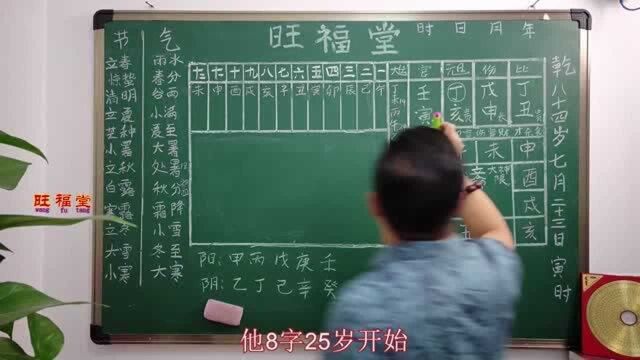 旺福堂
年
月
日
时
节
气
立春
惊蛰
清明
立夏
芒种
小暑
立秋
白露
寒露
立冬
大雪
小寒
雨水
春分
谷雨
小满
夏至
大暑
处暑
秋分
霜降
小雪
冬至
大寒
十二 十一 十 九 八 七 六 五 四 三 二 一
未 申 酉 戌 亥 子 丑 寅 卯 辰 巳 午
官
伤
比
壬 丁 戊 丁
寅 亥 申 丑
未 申
酉
戌
亥
乾八十四岁七月二十三日寅时
阳：甲丙戊庚壬
阴：乙丁己辛癸
旺福堂
wang fu tang
他8字25岁开始